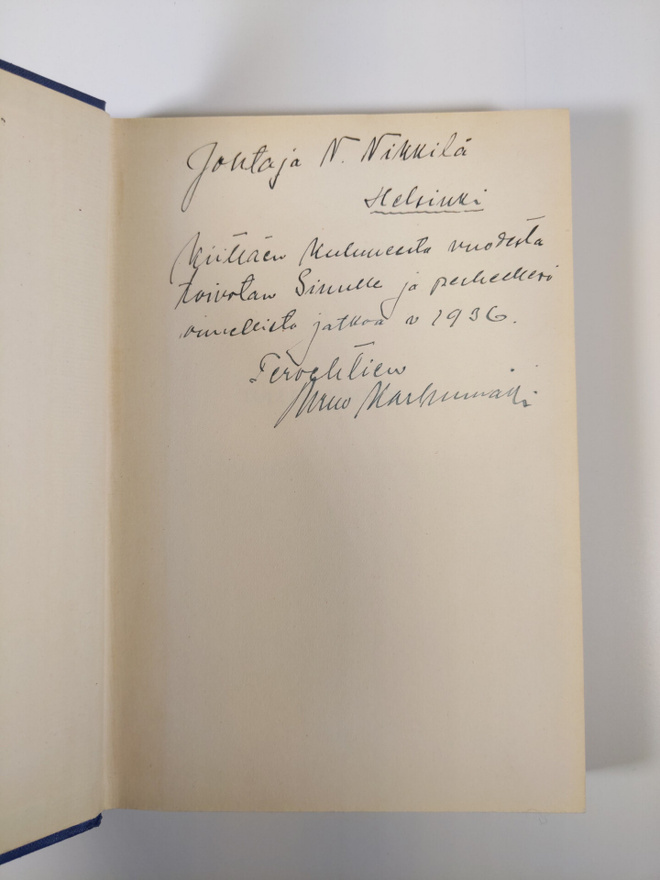 Johtaja N. Nikkilä
Helsinki
Kiittäen kuluneesta vuodesta
toivotan Sinulle ja perheellesi
onnellista jatkoa v 1936.
Tervehtien